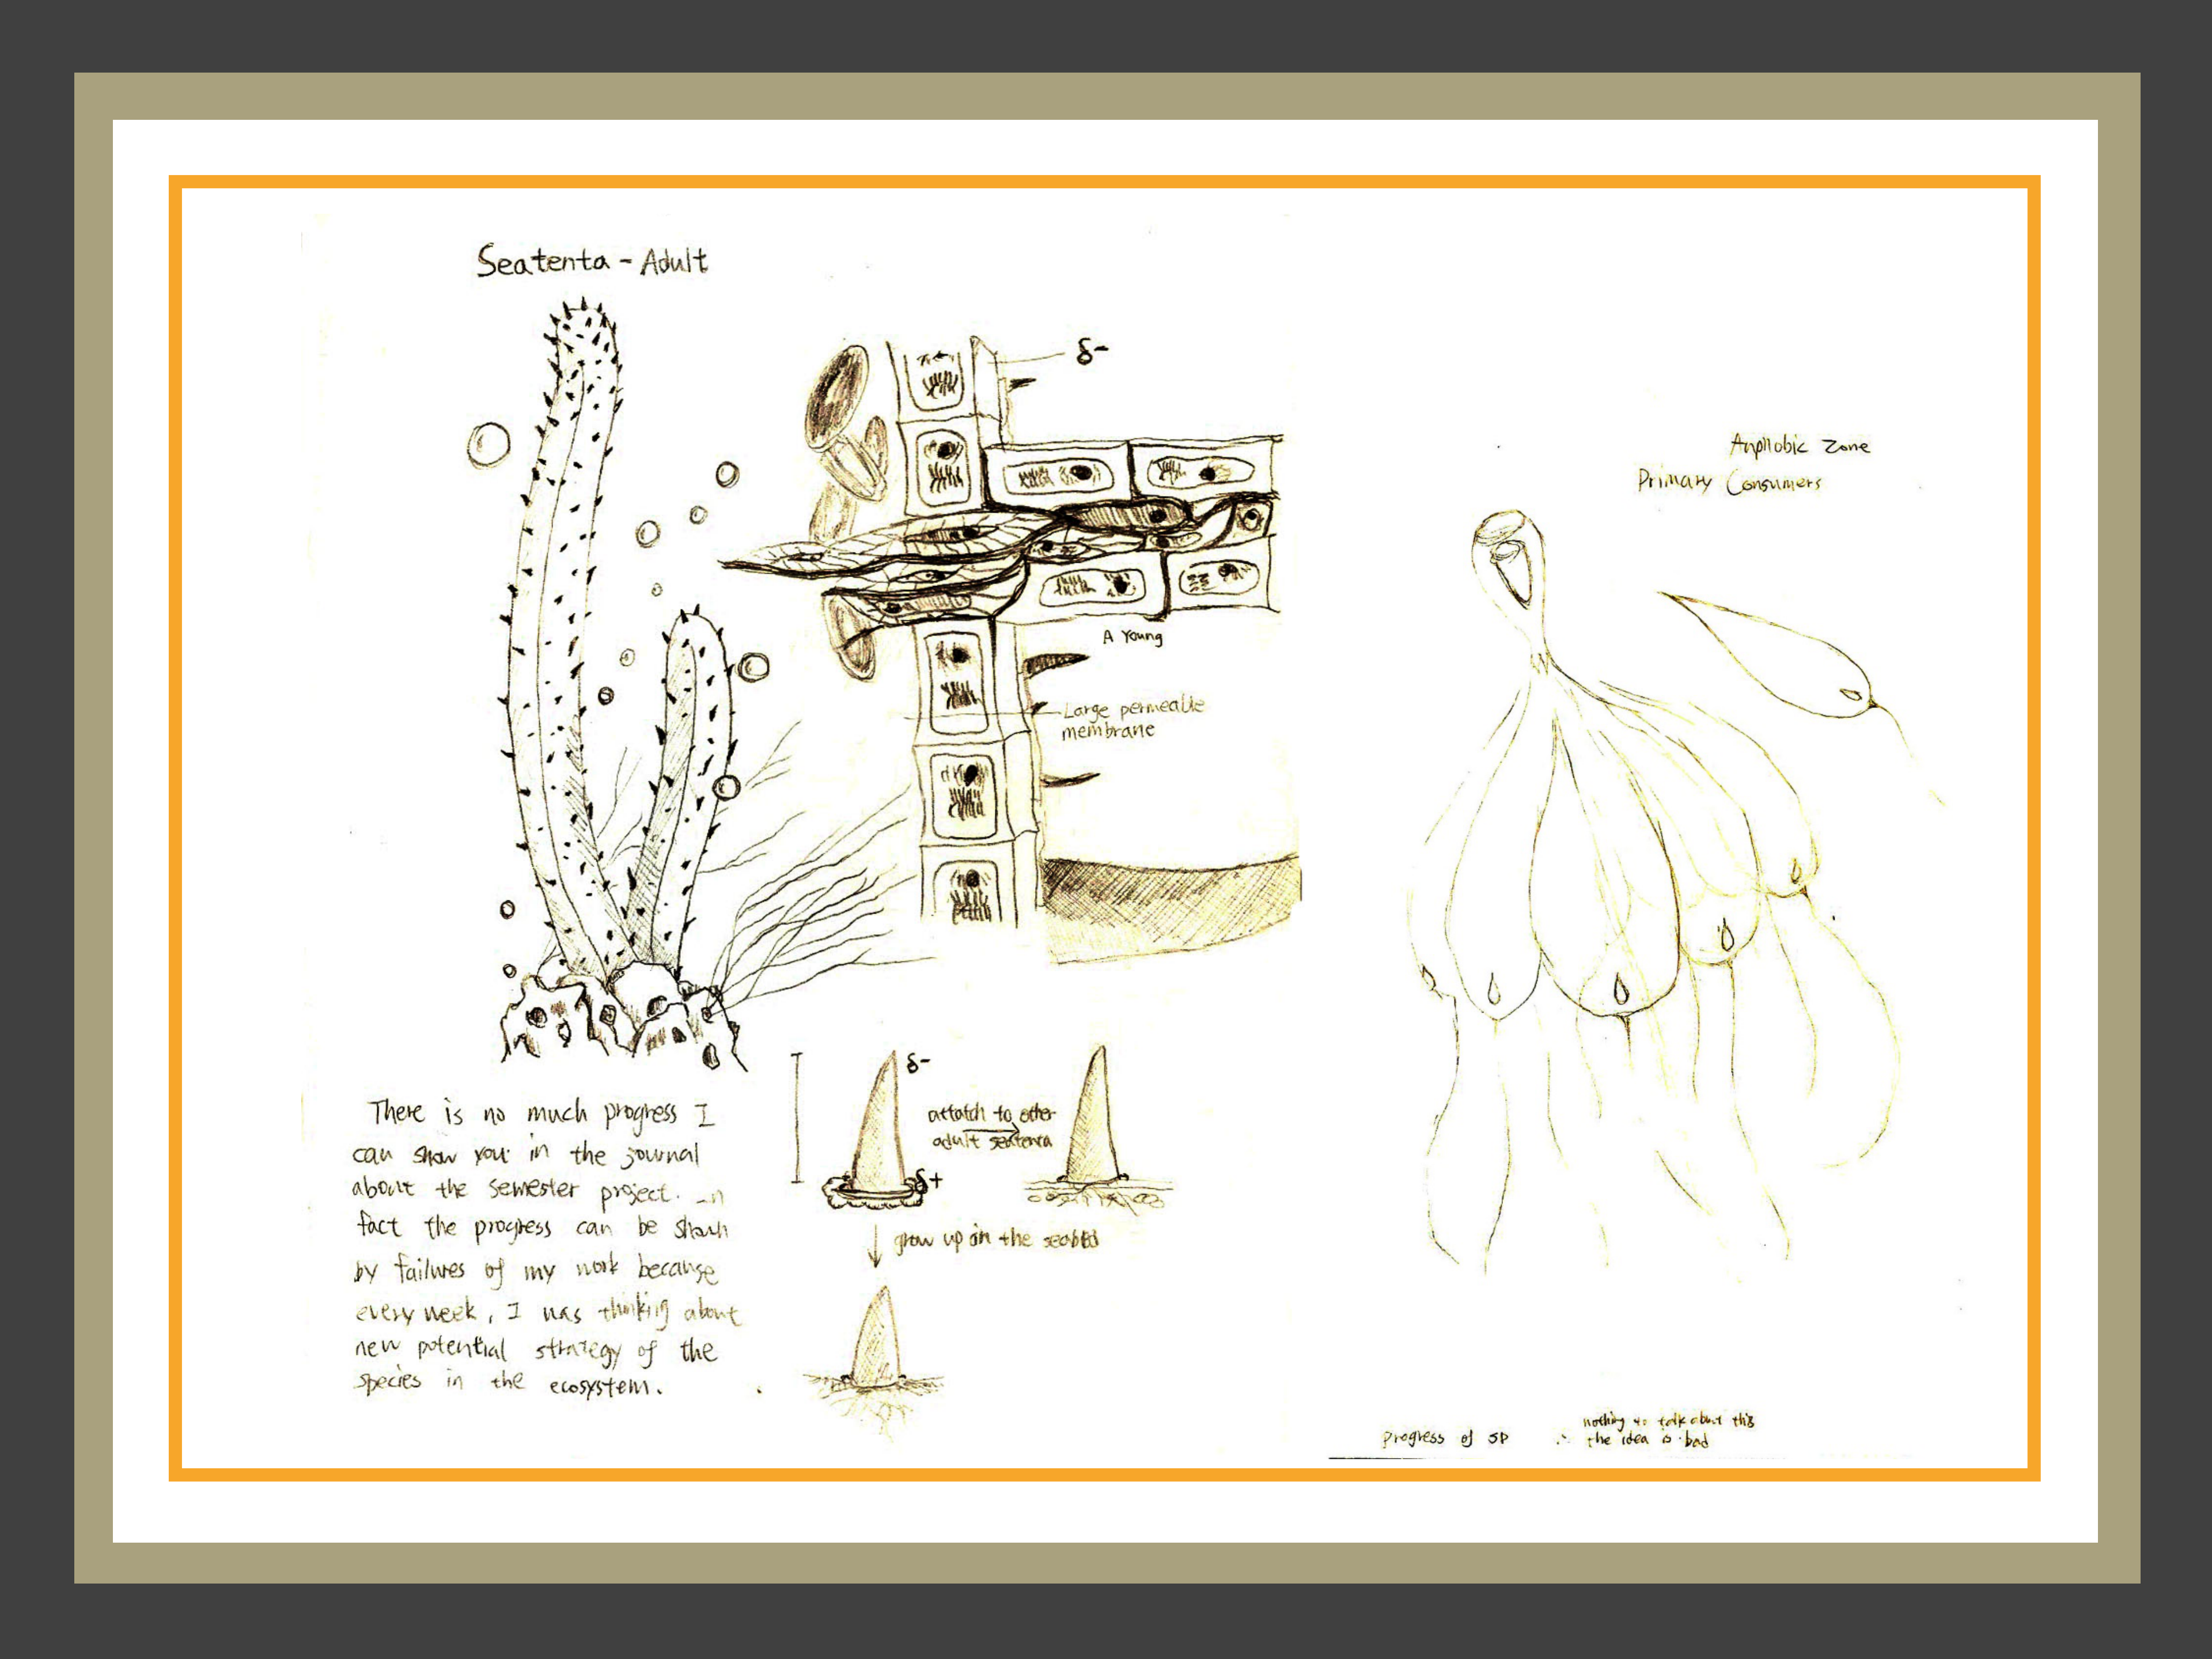 Seatenta - Adult
δ-
A Young
Large permeable
membrane
There is no much progress I
can show you in the journal
about the semester project. In
fact the progress can be shown
by failures of my work because
every week, I was thinking about
new potential strategy of the
species in the ecosystem.
δ-
δ+
attatch to other
adult seatenta
grow up on the seabed
Zone
Primary Consumers
progress of SP
∴ nothing to talk about this
the idea is bad